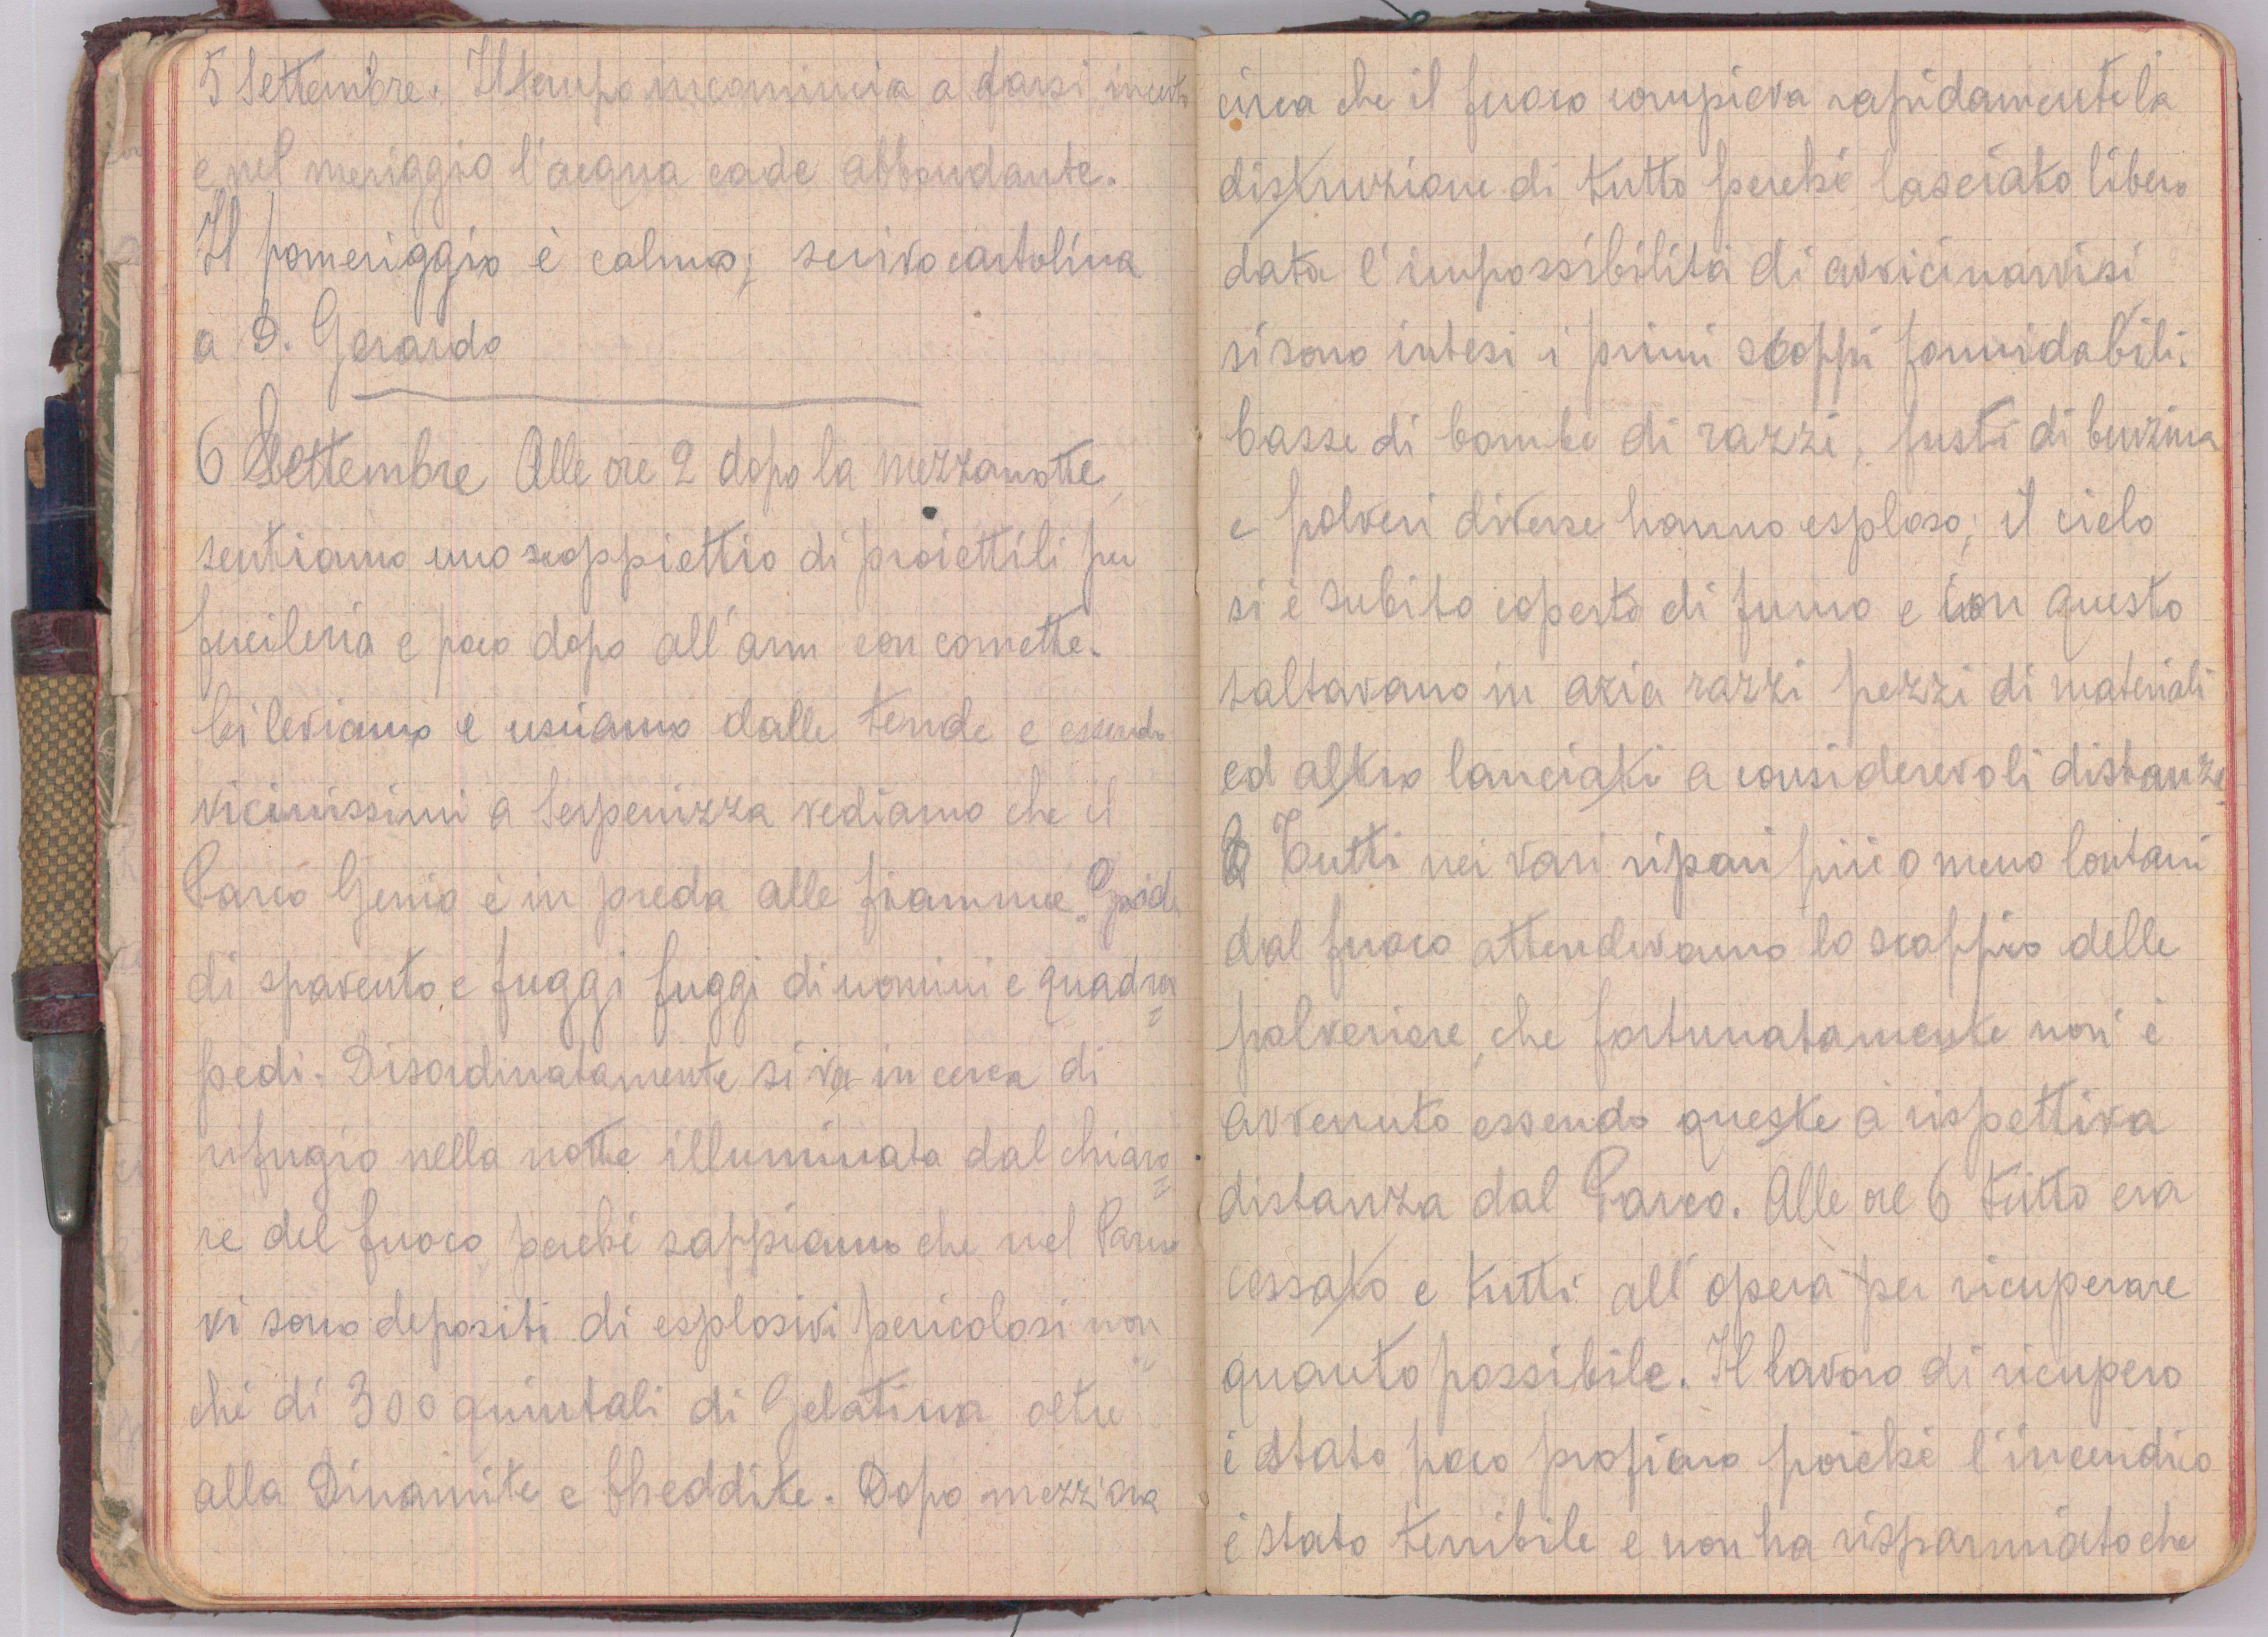 5 Settembre. Il tempo incomincia a farsi incerto
e nel meriggio l'acqua cade abbondante.
Il pomeriggio è calmo; scrivo cartolina
a D. Gerardo
6 Settembre Alle ore 2 dopo la mezzanotte,
sentiamo uno scoppiettio di proiettili per
fucileria e poco dopo all'armi con cornette.
Ci leviamo e usciamo dalle tende e essendo
vicinissimi a Serpenizza vediamo che il
Parco Genio è in preda alle fiamme. Grida
di spavento e fuggi fuggi di uomini e quadru=
pedi. Disordinatamente si va in cerca di
rifugio nella notte illuminata dal chiaro=
re del fuoco, perché sappiamo che nel Parco
vi sono depositi di esplosivi pericolosi non
ché di 300 quintali di Gelatina oltre
alla Dinamite e Cheddite. Dopo mezz'ora
circa che il fuoco compieva rapidamente la
distruzione di tutto perché lasciato libero
data l'impossibilità di avvicinarvisi
si sono intesi i primi scoppi formidabili.
Casse di bombe di razzi, fusti di benzina
e polveri diverse hanno esploso; il cielo
si è subito coperto di fumo e con questo
saltavano in aria razzi pezzi di materiali
ed altro lanciati a considerevoli distanze.
Tutti nei vari ripari più o meno lontani
dal fuoco attendevamo lo scoppio delle
polveriere, che fortunatamente non è
avvenuto essendo queste a rispettiva
distanza dal Parco. Alle ore 6 tutto era
cessato e tutti all'opera per ricuperare
quanto possibile. Il lavoro di ricupero
è stato poco proficuo poiché l'incendio
è stato terribile e non ha risparmiato che